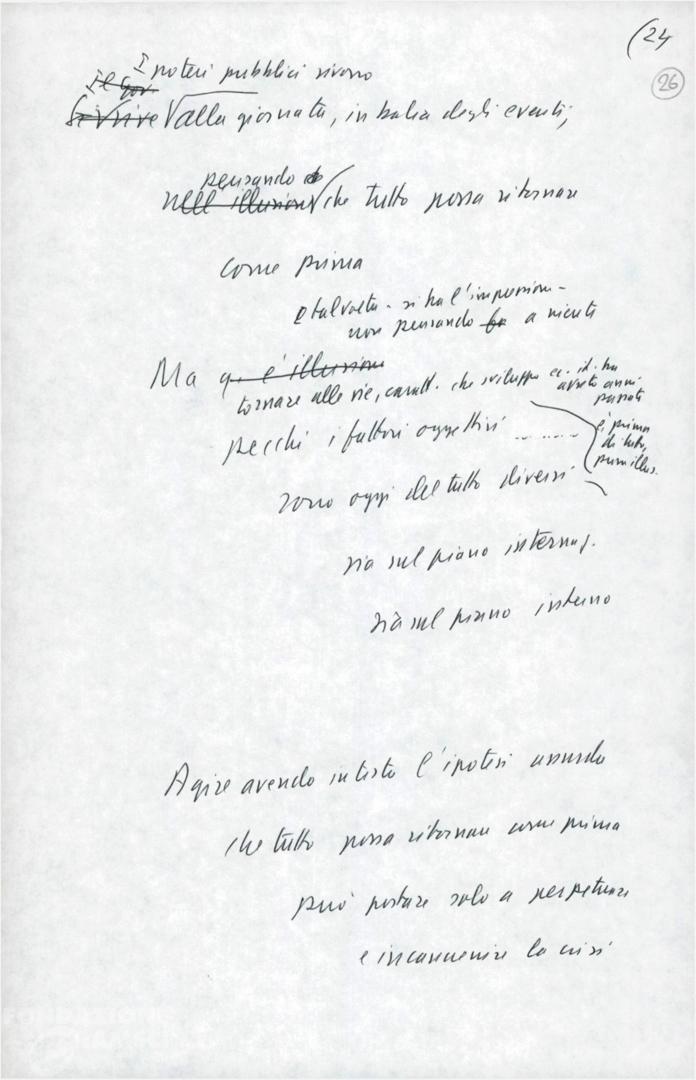 (24
26
I poteri pubblici vivono
Il gov.
Si vive alla giornata, in balia degli eventi,
pensando
nell'illusione che tutto possa ritornare
come prima
e talvolta - si ha l'impression -
non pensando a niente
Ma q. è illusione
tornare alle vie, caratt. che sviluppo ec. it. ha
avuto anni
passati
perché i fattori oggettivi
è prima
di tutto,
pura illus.
sono oggi del tutto diversi
sia sul piano internaz.
sia sul piano interno
Agire avendo in testa l'ipotesi assurda
che tutto possa ritornare come prima
può portare solo a perpetuare
e incancrenire la crisi
FONDAZIONE